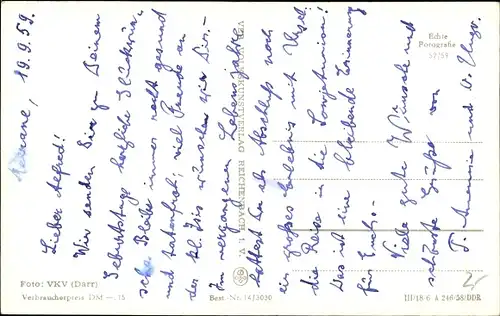 Meerane, 19.9.59.
Lieber Alfred!
Wir senden Dir zu Deinem
Geburtstage herzliche Glückwün-
sche. Bleibe immer recht gesund
und tatenfroh; viel Freude an
der kl. Iris wünschen wir Dir. –
Im vergangenen Lebensjahre
hattest Du als Abschluß noch
ein großes Erlebnis mit Ursel:
die Reise in die Sowjetunion!
Das ist eine bleibende Erinnerung
für Euch. –
Viele gute Wünsche und
schönste Grüße von
T. und O. Hugo.
VEB VOLKSKUNSTVERLAG REICHENBACH I. V.
Echte
Fotografie
Foto: VKV (Darr)
Verbraucherpreis DM –.15
Best.-Nr. 14/3020
III/18/6 A 246/58/DDR
2/-